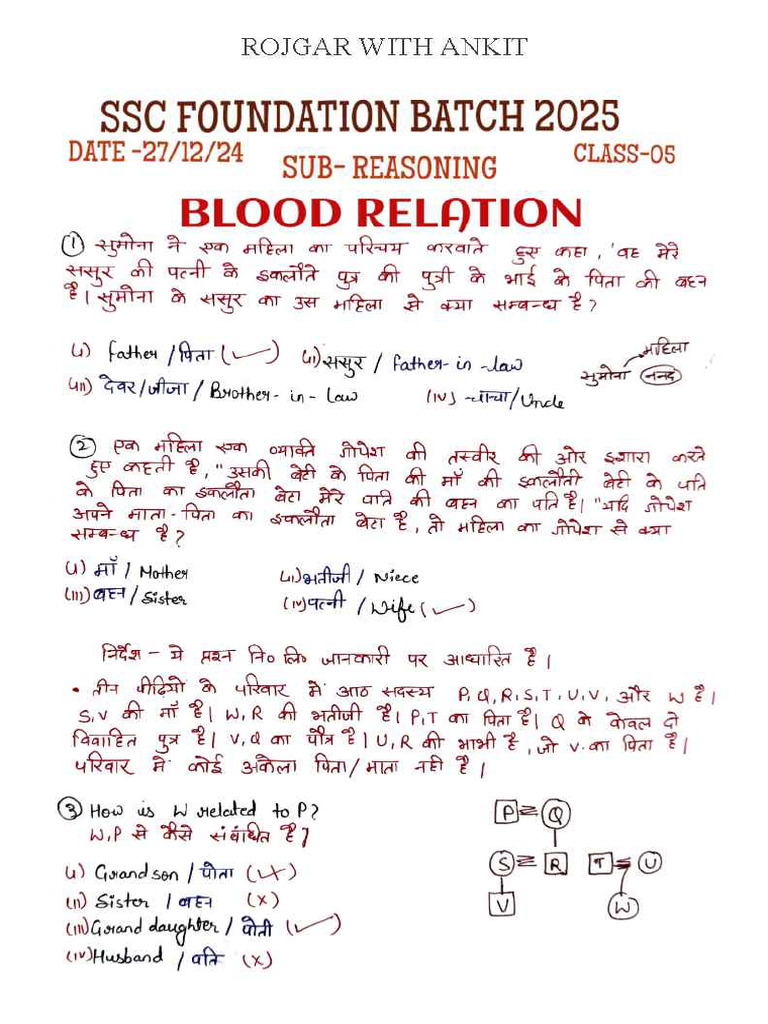 ROJGAR WITH ANKIT
SSC FOUNDATION BATCH 2025
DATE -27/12/24
SUB- REASONING
CLASS-05
BLOOD RELATION
① सुमोना ने एक महिला का परिचय करवाते हुए कहा, 'वह मेरे
ससुर की पत्नी के इकलौते पुत्र की पुत्री के भाई के पिता की बहन
है। सुमोना के ससुर का उस महिला से क्या सम्बन्ध है?
(i) father / पिता (✓) (ii) ससुर / father-in-law
(iii) देवर/जीजा / Brother-in-Law (iv) चाचा/Uncle
महिला
सुमोना ननद
② एक महिला एक व्यक्ति गोपेश की तस्वीर की ओर इशारा करते
हुए कहती है, "उसकी बेटी के पिता की माँ की इकलौती बेटी के पति
के पिता का इकलौता बेटा मेरे पति की बहन का पति है। "यदि गोपेश
अपने माता-पिता का इकलौता बेटा है, तो महिला का गोपेश से क्या
सम्बन्ध है?
(i) माँ / Mother (ii) भतीजी / Niece
(iii) बहन / Sister (iv) पत्नी / Wife (✓)
निर्देश - ये प्रश्न नि० लि० जानकारी पर आधारित है।
• तीन पीढ़ियों के परिवार में आठ सदस्य P, Q, R, S, T, U, V, और W है।
S, V की माँ है। W, R की भतीजी है। P, T का पिता है। Q के केवल दो
विवाहित पुत्र है। V, Q का पौत्र है। U, R की भाभी है, जो V का पिता है।
परिवार में कोई अकेला पिता/माता नही है।
③ How is W related to P?
W, P से कैसे संबंधित है?
(i) Grandson / पोता (✓×)
(ii) Sister / बहन (×)
(iii) Grand daughter / पोती (✓)
(iv) Husband / पति (×)
P = Q
S = R T = U
V W